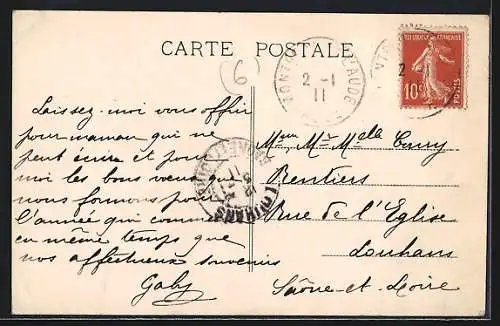 CARTE POSTALE
6
L'AUDE
2 - 1
11
REPUBLIQUE FRANÇAISE
10c
POSTES
2
LOUHANS
Laissez-moi vous offrir
pour maman qui ne
peut écrire et pour
moi les bons voeux que
nous formons pour
l'année qui commence
en même temps que
nos affectueux souvenirs
Gaby
Mr Melle
Rentiers
Rue de l'Eglise
Louhans
Saône-et-Loire